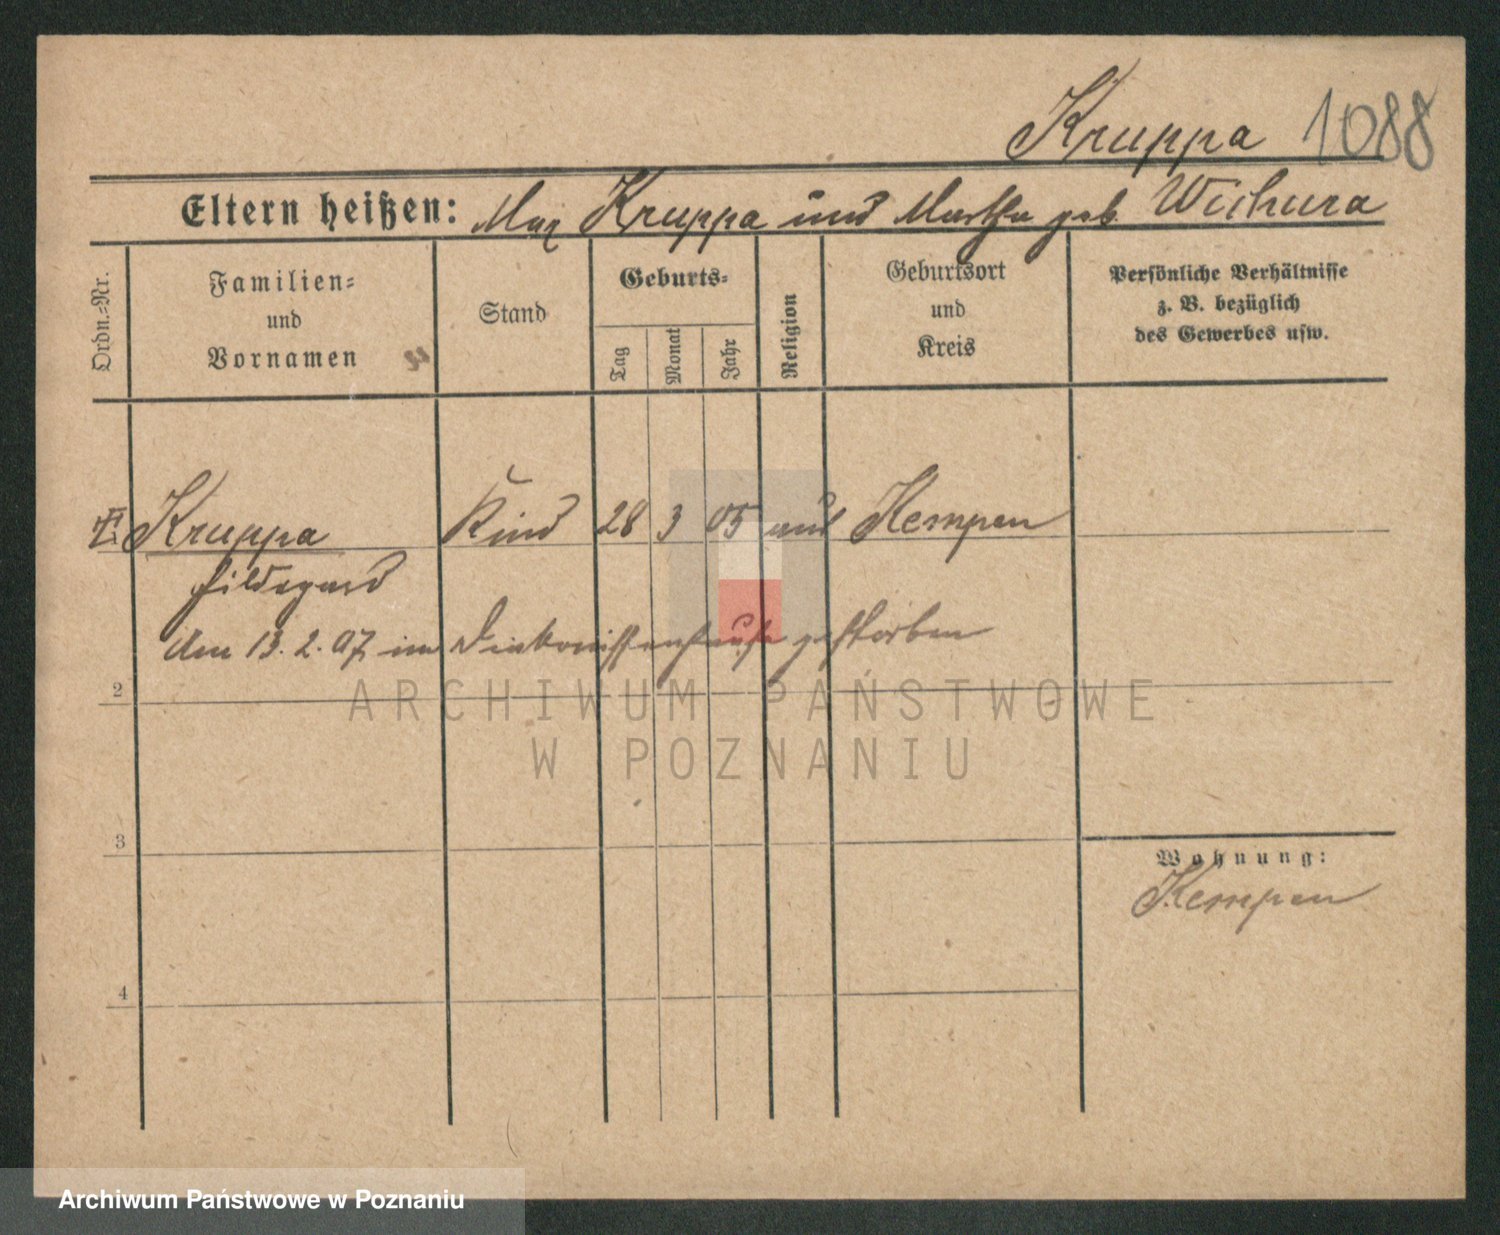 Kruppa 1088
Eltern heißen: Max Kruppa und Martha geb. Wichura
Ordn.=Nr.
Familien=
und
Vornamen
Stand
Geburts=
Tag
Monat
Jahr
Religion
Geburtsort
und
Kreis
Persönliche Verhältnisse
z. B. bezüglich
des Gewerbes usw.
Kruppa Kind 28 3 05 Kempen
Hildegard
den 13. 2. 07 im Diakonissenhause gestorben
2
ARCHIWUM PAŃSTWOWE
W POZNANIU
3
Wohnung:
Kempen
4
Archiwum Państwowe w Poznaniu